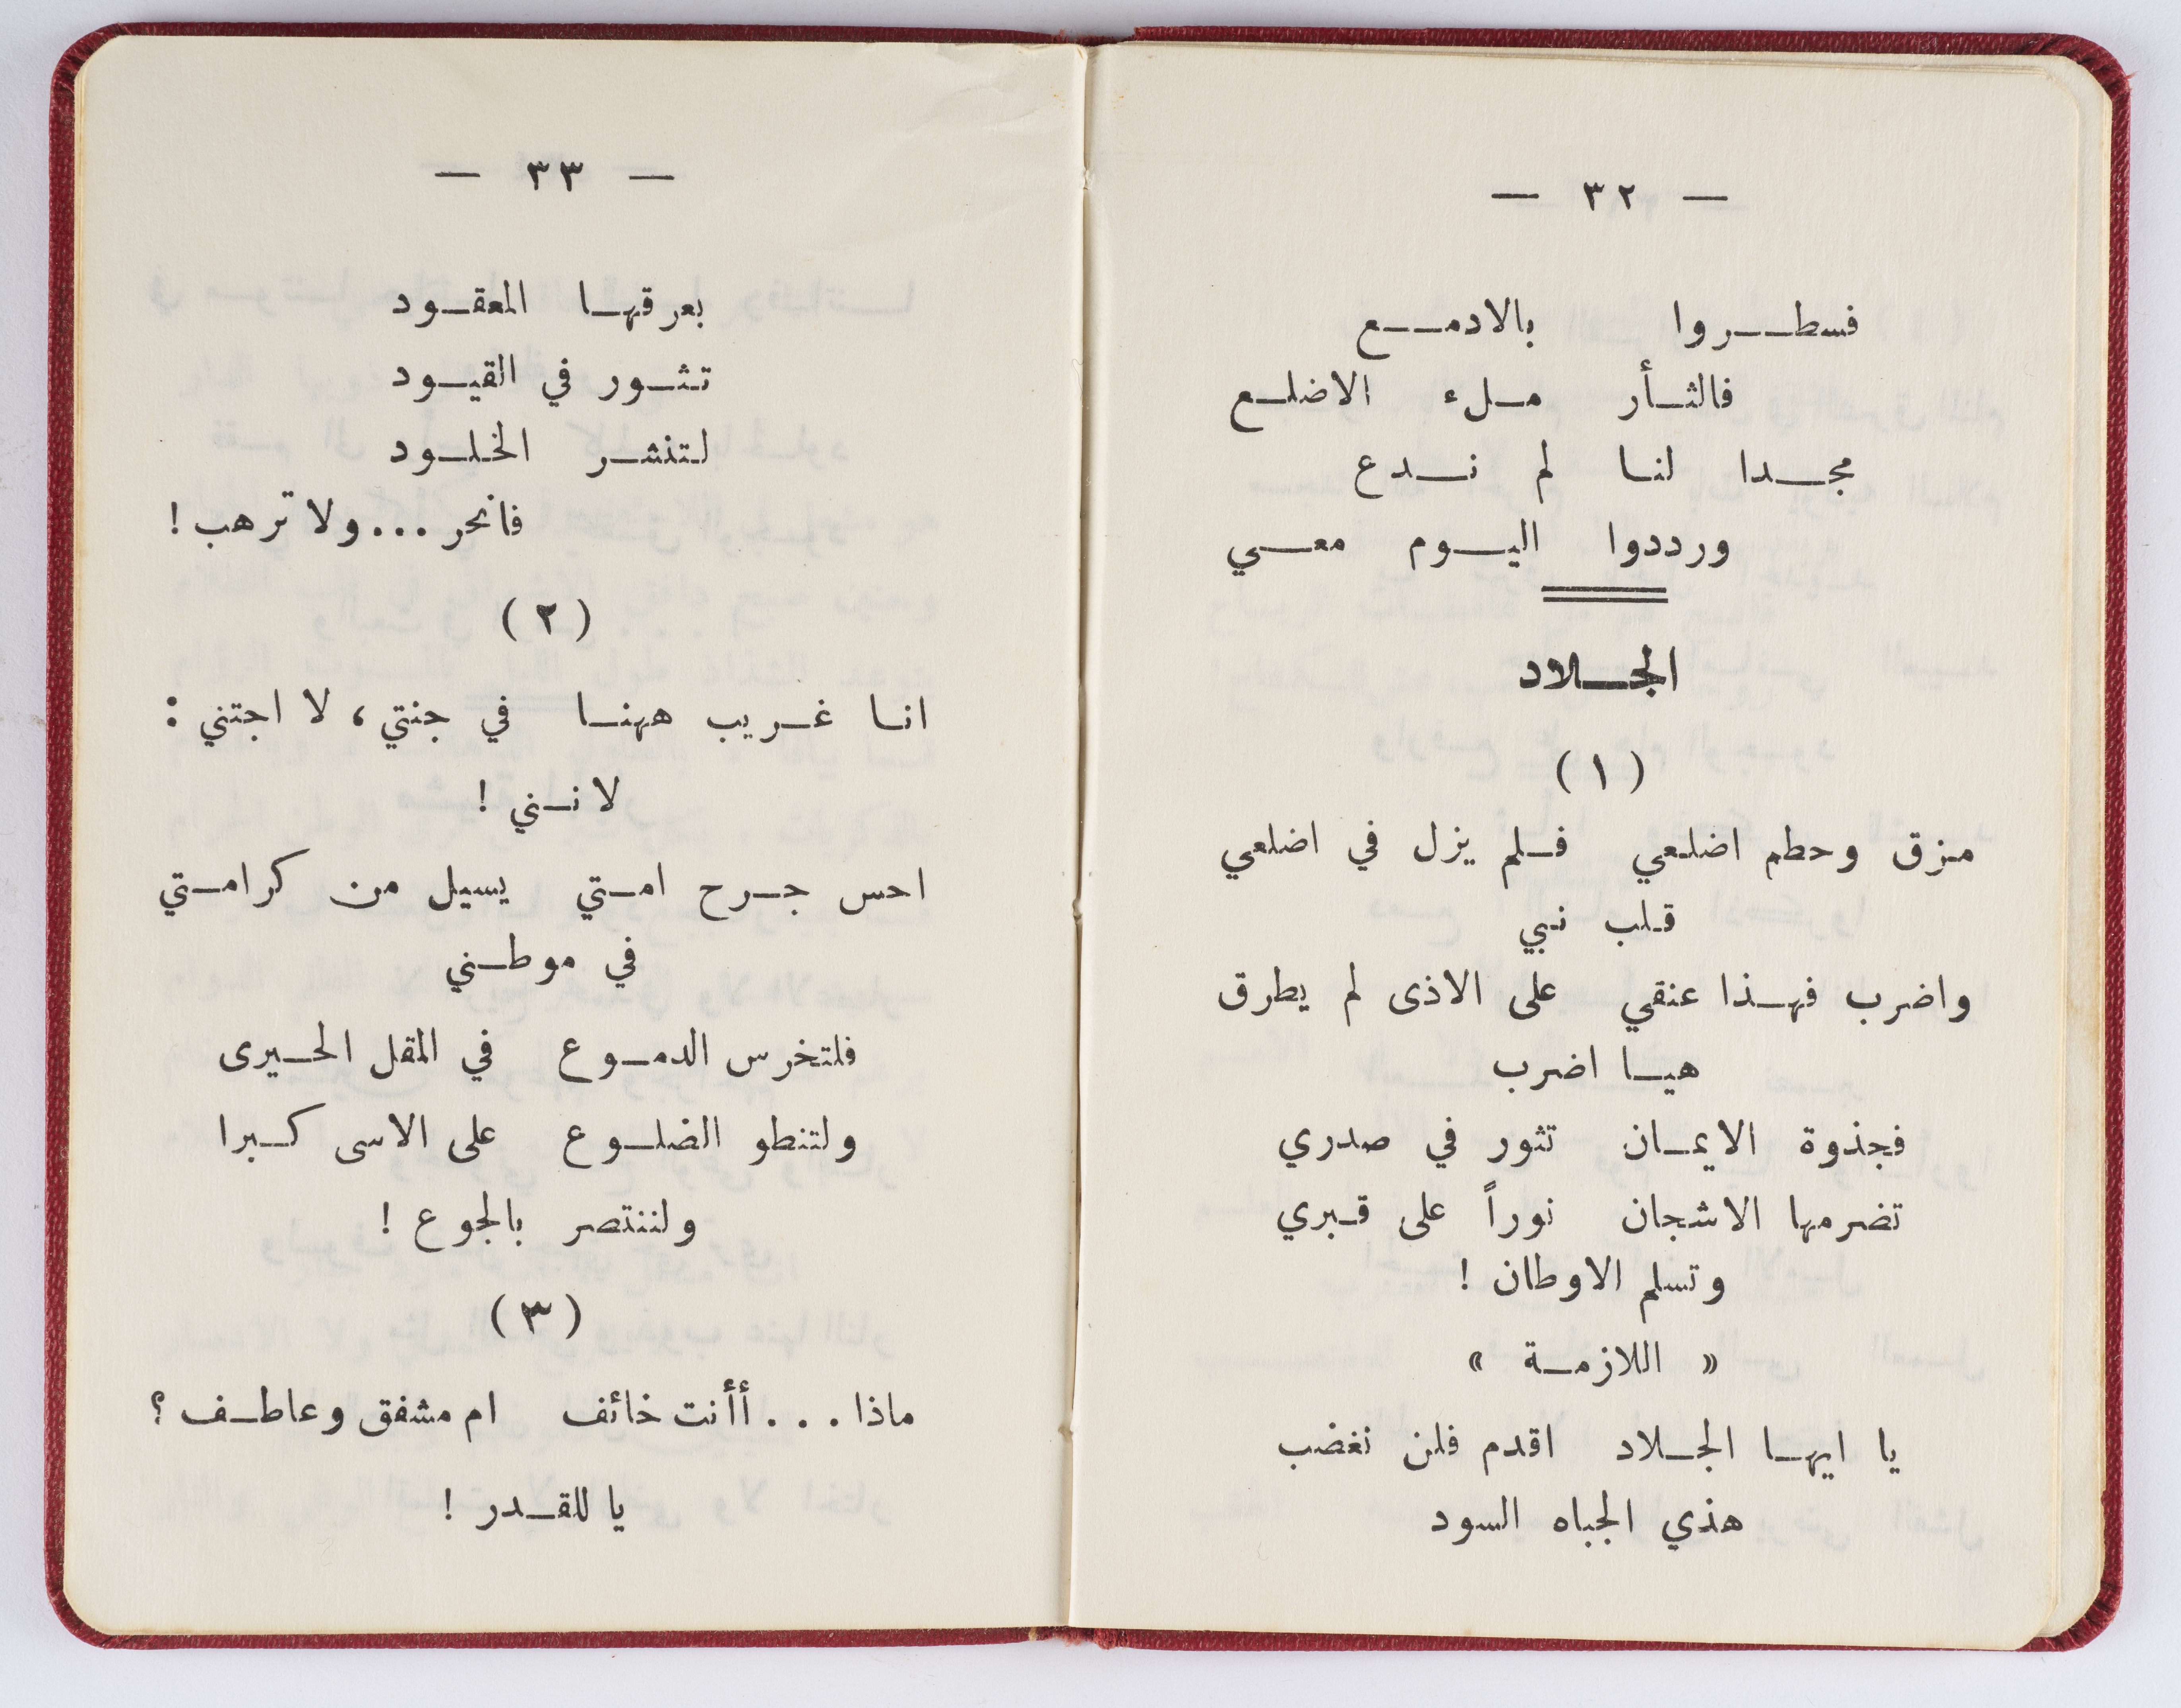 — ٣٢ —
فسطروا بالادمع
فالثأر ملء الاضلع
مجدا لنا لم ندع
ورددوا اليوم معي
الجلاد
( ١ )
مزق وحطم اضلعي فلم يزل في اضلعي
قلب نبي
واضرب فهذا عنقي على الاذى لم يطرق
هيا اضرب
فجذوة الايمان تثور في صدري
تضرمها الاشجان نوراً على قبري
وتسلم الاوطان !
« اللازمة »
يا ايها الجلاد اقدم فلن نغضب
هذي الجباه السود
— ٣٣ —
بعرقها المعقود
تثور في القيود
لتنشر الخلود
فانحر ... ولا ترهب !
( ٢ )
انا غريب ههنا في جنتي، لا اجتني :
لانني !
احس جرح امتي يسيل من كرامتي
في موطني
فلتخرس الدموع في المقل الحيرى
ولتنطو الضلوع على الاسى كبرا
ولننتصر بالجوع !
( ٣ )
ماذا . . . أأنت خائف ام مشفق وعاطف ؟
يا للقدر !